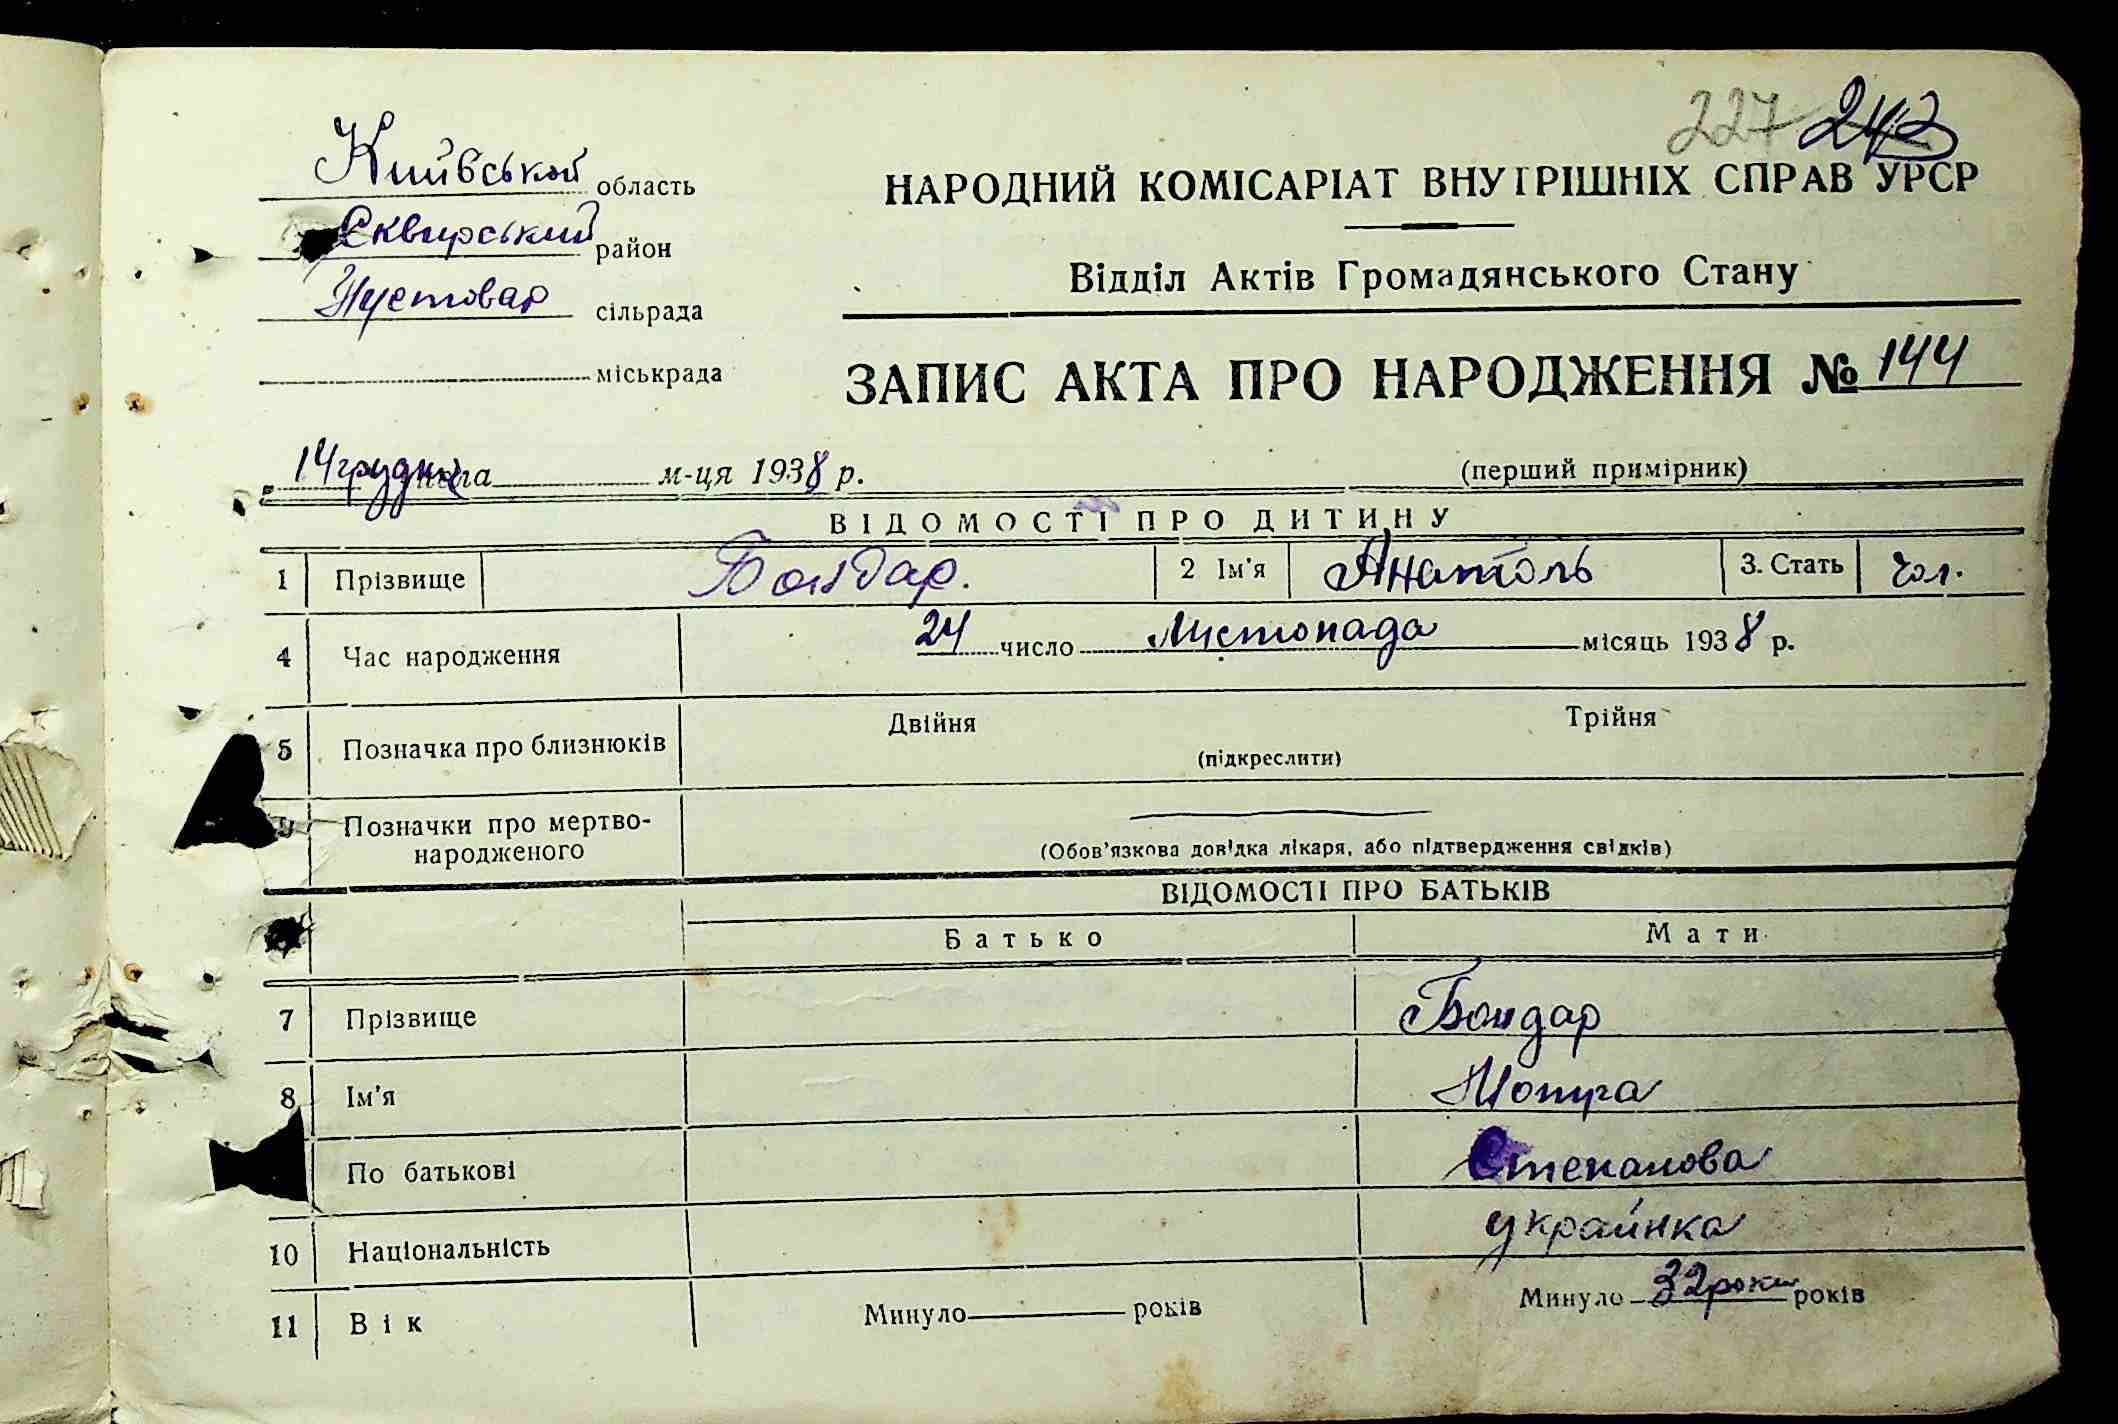 227 243
Київської область
НАРОДНИЙ КОМІСАРІАТ ВНУТРІШНІХ СПРАВ УРСР
Сквирський район
Відділ Актів Громадянського Стану
Пустовар сільрада
міськрада
ЗАПИС АКТА ПРО НАРОДЖЕННЯ № 144
14 грудня м-ця 1938 р.
(перший примірник)
ВІДОМОСТІ ПРО ДИТИНУ
1 Прізвище Бондар. 2 Ім'я Анатоль 3. Стать Чол.
4 Час народження 24 число Листопада місяць 1938 р.
5 Позначка про близнюків Двійня Трійня
(підкреслити)
Позначки про мертво-
народженого
(Обов'язкова довідка лікаря, або підтвердження свідків)
ВІДОМОСТІ ПРО БАТЬКІВ
Батько Мати
7 Прізвище Бондар
8 Ім'я Мотря
По батькові Степанова
10 Національність українка
11 Вік Минуло років Минуло 32 роки років